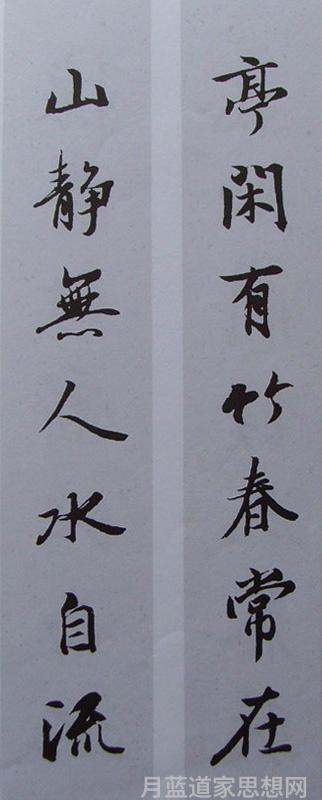 亭閑有竹春常在
山静無人水自流
月蓝道家思想网